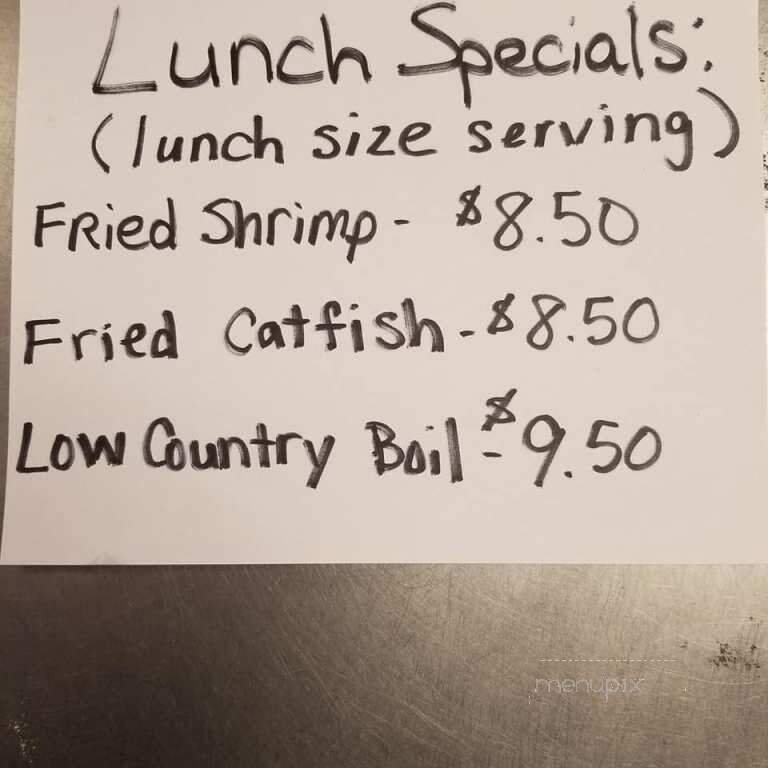 Lunch Specials:
(lunch size serving)
FRied Shrimp - $8.50
Fried Catfish - $8.50
Low Country Boil - $9.50
menupix